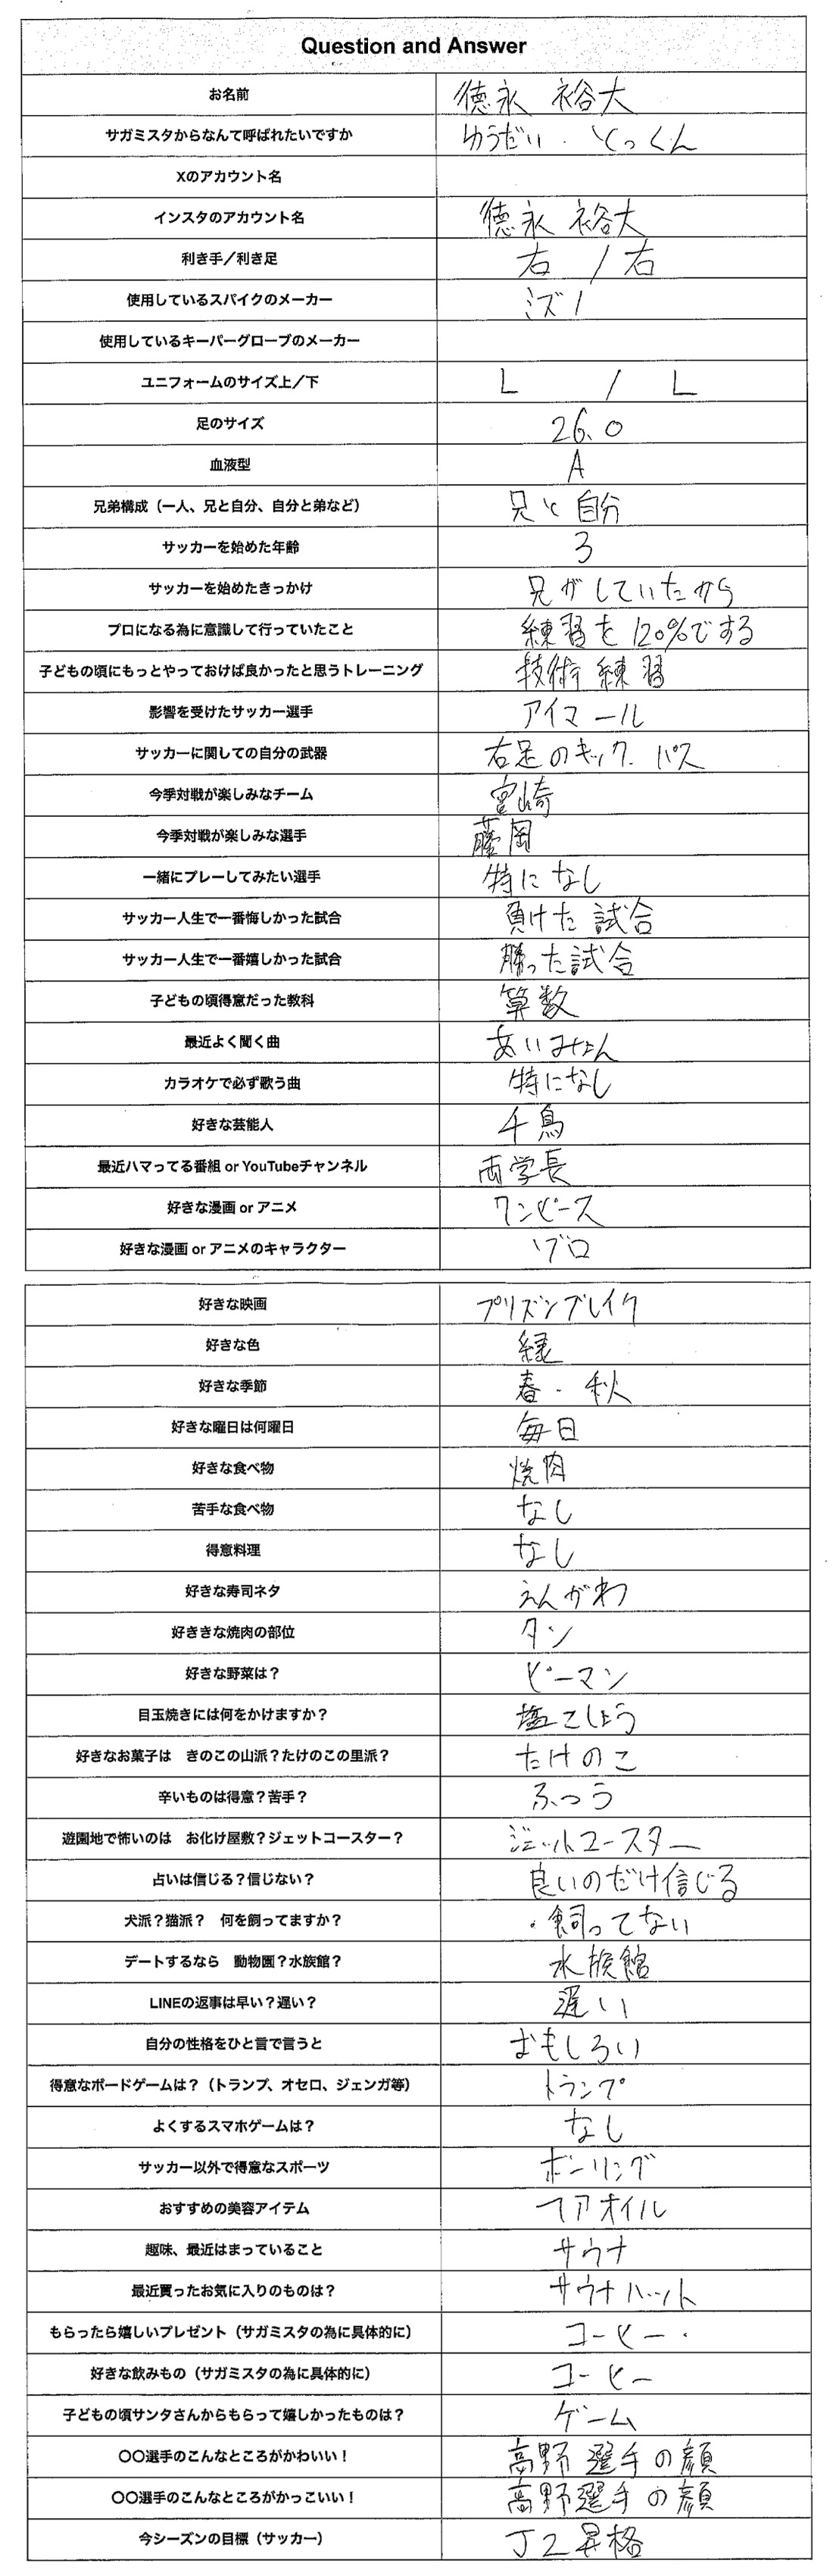 Question and Answer
お名前 徳永 裕大
サガミスタからなんて呼ばれたいですか ゆうだい・とっくん
Xのアカウント名
インスタのアカウント名 徳永 裕大
利き手/利き足 右 / 右
使用しているスパイクのメーカー ミズノ
使用しているキーパーグローブのメーカー
ユニフォームのサイズ上/下 L / L
足のサイズ 26.0
血液型 A
兄弟構成（一人、兄と自分、自分と弟など） 兄と自分
サッカーを始めた年齢 3
サッカーを始めたきっかけ 兄がしていたから
プロになる為に意識して行っていたこと 練習を120%でする
子どもの頃にもっとやっておけば良かったと思うトレーニング 技術練習
影響を受けたサッカー選手 アイマール
サッカーに関しての自分の武器 右足のキック. パス
今季対戦が楽しみなチーム 宮崎
今季対戦が楽しみな選手 藤岡
一緒にプレーしてみたい選手 特になし
サッカー人生で一番悔しかった試合 負けた試合
サッカー人生で一番嬉しかった試合 勝った試合
子どもの頃得意だった教科 算数
最近よく聞く曲 あいみょん
カラオケで必ず歌う曲 特になし
好きな芸能人 千鳥
最近ハマってる番組 or YouTubeチャンネル 両学長
好きな漫画 or アニメ ワンピース
好きな漫画 or アニメのキャラクター ゾロ
好きな映画 プリズンブレイク
好きな色 緑
好きな季節 春・秋
好きな曜日は何曜日 毎日
好きな食べ物 焼肉
苦手な食べ物 なし
得意料理 なし
好きな寿司ネタ えんがわ
好ききな焼肉の部位 タン
好きな野菜は？ ピーマン
目玉焼きには何をかけますか？ 塩こしょう
好きなお菓子は きのこの山派？たけのこの里派？ たけのこ
辛いものは得意？苦手？ ふつう
遊園地で怖いのは お化け屋敷？ジェットコースター？ ジェットコースター
占いは信じる？信じない？ 良いのだけ信じる
犬派？猫派？ 何を飼ってますか？ ・飼ってない
デートするなら 動物園？水族館？ 水族館
LINEの返事は早い？遅い？ 遅い
自分の性格をひと言で言うと おもしろい
得意なボードゲームは？（トランプ、オセロ、ジェンガ等） トランプ
よくするスマホゲームは？ なし
サッカー以外で得意なスポーツ ボーリング
おすすめの美容アイテム ヘアオイル
趣味、最近はまっていること サウナ
最近買ったお気に入りのものは？ サウナハット
もらったら嬉しいプレゼント（サガミスタの為に具体的に） コーヒー・
好きな飲みもの（サガミスタの為に具体的に） コーヒー
子どもの頃サンタさんからもらって嬉しかったものは？ ゲーム
〇〇選手のこんなところがかわいい！ 高野選手の顔
〇〇選手のこんなところがかっこいい！ 高野選手の顔
今シーズンの目標（サッカー） J2昇格